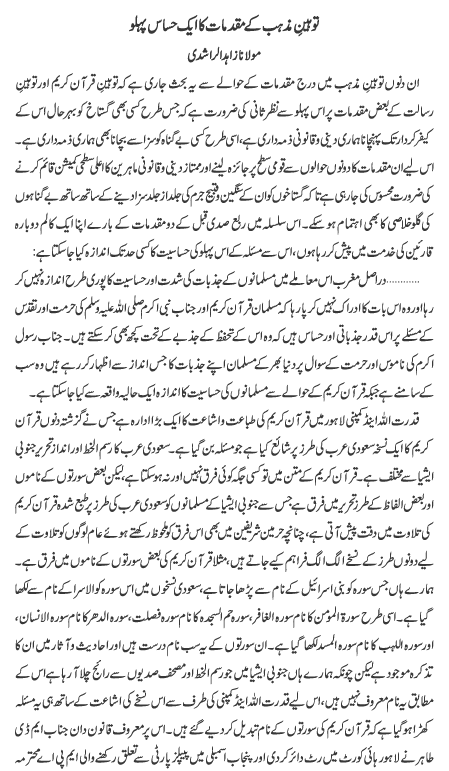 توہینِ مذہب کے مقدمات کا ایک حساس پہلو
مولانا زاہد الراشدی
ان دنوں توہینِ مذہب میں درج مقدمات کے حوالے سے یہ بحث جاری ہے کہ توہینِ قرآن کریم اور توہینِ
رسالت کے بعض مقدمات پر اس پہلو سے نظر ثانی کی ضرورت ہے کہ جس طرح کسی بھی گستاخ کو بہرحال اس کے
کیفر کردار تک پہنچانا ہماری دینی و قانونی ذمہ داری ہے، اسی طرح کسی بے گناہ کو سزا سے بچانا بھی ہماری ذمہ داری ہے۔
اس لیے ان مقدمات کا دونوں حوالوں سے قومی سطح پر جائزہ لینے اور ممتاز دینی و قانونی ماہرین کا اعلیٰ سطحی کمیشن قائم کرنے
کی ضرورت محسوس کی جا رہی ہے تاکہ گستاخوں کو ان کے سنگین و قبیح جرم کی جلد از جلد سزا دینے کے ساتھ ساتھ بے گناہوں
کی گلوخلاصی کا بھی اہتمام ہو سکے۔ اس سلسلہ میں ربع صدی قبل کے دو مقدمات کے بارے اپنا ایک کالم دوبارہ
قارئین کی خدمت میں پیش کر رہا ہوں، اس سے مسئلہ کے اس پہلو کی حساسیت کا کسی حد تک اندازہ کیا جا سکتا ہے:
............دراصل مغرب اس معاملے میں مسلمانوں کے جذبات کی شدت اور حساسیت کا پوری طرح اندازہ نہیں کر
رہا اور وہ اس بات کا ادراک نہیں کر پا رہا کہ مسلمان قرآن کریم اور جناب نبی اکرم صلی اللہ علیہ وسلم کی حرمت اور تقدس
کے مسئلے پر اس قدر جذباتی اور حساس ہیں کہ وہ اس کے تحفظ کے جذبے کے تحت کچھ بھی کر سکتے ہیں۔ جناب رسول
اکرم کی ناموس اور حرمت کے سوال پر دنیا بھر کے مسلمان اپنے جذبات کا جس انداز سے اظہار کر رہے ہیں وہ سب
کے سامنے ہے جبکہ قرآن کریم کے حوالے سے مسلمانوں کی حساسیت کا اندازہ ایک حالیہ واقعہ سے کیا جا سکتا ہے۔
قدرت اللہ اینڈ کمپنی لاہور میں قرآن کریم کی طباعت و اشاعت کا ایک بڑا ادارہ ہے جس نے گزشتہ دنوں قرآن
کریم کا ایک نسخہ سعودی عرب کی طرز پر شائع کیا ہے جو مسئلہ بن گیا ہے۔ سعودی عرب کا رسم الخط اور انداز تحریر جنوبی
ایشیا سے مختلف ہے۔ قرآن کریم کے متن میں تو کسی جگہ کوئی فرق نہیں اور نہ ہو سکتا ہے، لیکن بعض سورتوں کے ناموں
اور بعض الفاظ کے طرز تحریر میں فرق ہے جس سے جنوبی ایشیا کے مسلمانوں کو سعودی عرب کی طرز پر طبع شدہ قرآن کریم
کی تلاوت میں دقت پیش آتی ہے، چنانچہ حرمین شریفین میں بھی اس فرق کو ملحوظ رکھتے ہوئے عام لوگوں کو تلاوت کے
لیے دونوں طرز کے نسخے الگ الگ فراہم کیے جاتے ہیں، مثلاً قرآن کریم کی بعض سورتوں کے نام میں فرق ہے۔
ہمارے ہاں جس سورہ کو بنی اسرائیل کے نام سے پڑھا جاتا ہے، سعودی نسخوں میں اس سورہ کو الاسرا کے نام سے لکھا
گیا ہے۔ اسی طرح سورۃ المؤمن کا نام سورہ الغافر، سورہ حم السجدہ کا نام سورہ فصلت، سورہ الدھر کا نام سورہ الانسان،
اور سورہ اللہب کا نام سورہ المسد لکھا گیا ہے۔ ان سورتوں کے یہ سب نام درست ہیں اور احادیث و آثار میں ان کا
تذکرہ موجود ہے لیکن چونکہ ہمارے ہاں جنوبی ایشیا میں جو رسم الخط اور مصحف صدیوں سے رائج چلا آ رہا ہے اس کے
مطابق یہ نام معروف نہیں ہیں، اس لیے قدرت اللہ اینڈ کمپنی کی طرف سے اس نسخے کی اشاعت کے ساتھ ہی یہ مسئلہ
کھڑا ہو گیا ہے کہ قرآن کریم کی سورتوں کے نام تبدیل کر دیے گئے ہیں۔ اس پر معروف قانون دان جناب ایم ڈی
طاہر نے لاہور ہائی کورٹ میں رٹ دائر کر دی اور پنجاب اسمبلی میں پیپلز پارٹی سے تعلق رکھنے والی ایم پی اے محترمہ